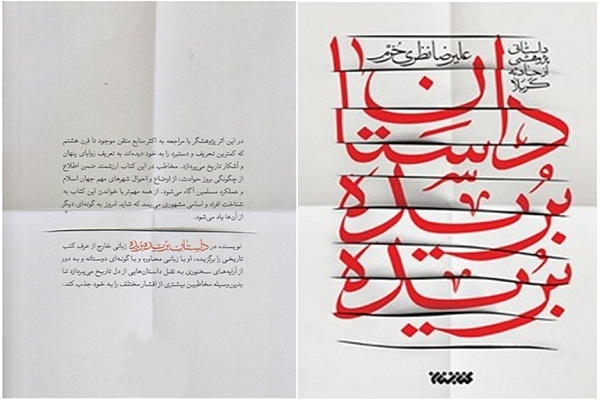 داستانی
پژوهشی
از حادثه
کربلا
علیرضا نظری خرّم
داستان
بُریده
بُریده
در این اثر پژوهشگر با مراجعه به اکثر منابع متقن موجود تا قرن هشتم
که کمترین تحریف و دستبرد را به خود دیده‌اند به تعریف زوایای پنهان
و آشکار تاریخ می‌پردازد. مخاطب در این کتاب ارزشمند ضمن اطلاع
از چگونگی بروز حوادث، از اوضاع و احوال شهرهای مهم جهان اسلام
و عملکرد مسلمین آگاه می‌شود. از همه مهم‌تر با خواندن این کتاب به
شناخت افراد و اسامی مشهوری می‌رسد که شاید امروز به گونه‌ای دیگر
از آن‌ها یاد می‌شود.
نویسنده در داستان بریده بریده زبانی خارج از عرف کتب
تاریخی را برگزیده، او با زبانی محاوره و با گونه‌ای دوستانه و به دور
از آرایه‌های سخنوری به نقل داستان‌هایی از دل تاریخ می‌پردازد تا
بدین‌وسیله مخاطبین بیشتری از اقشار مختلف را به خود جذب کند.